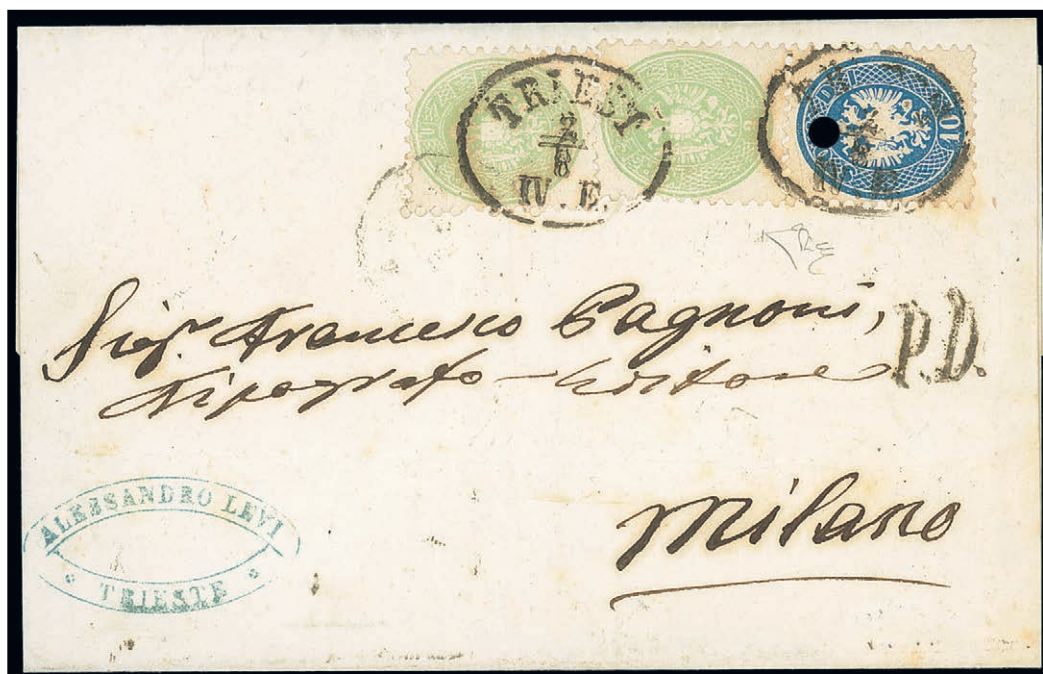 TRIEST
2/8
IV. E.
IV. E.
Sigr. Francesco Pagnoni,
Tipografo - Editore
P.D.
Milano
ALESSANDRO LEVI
TRIESTE